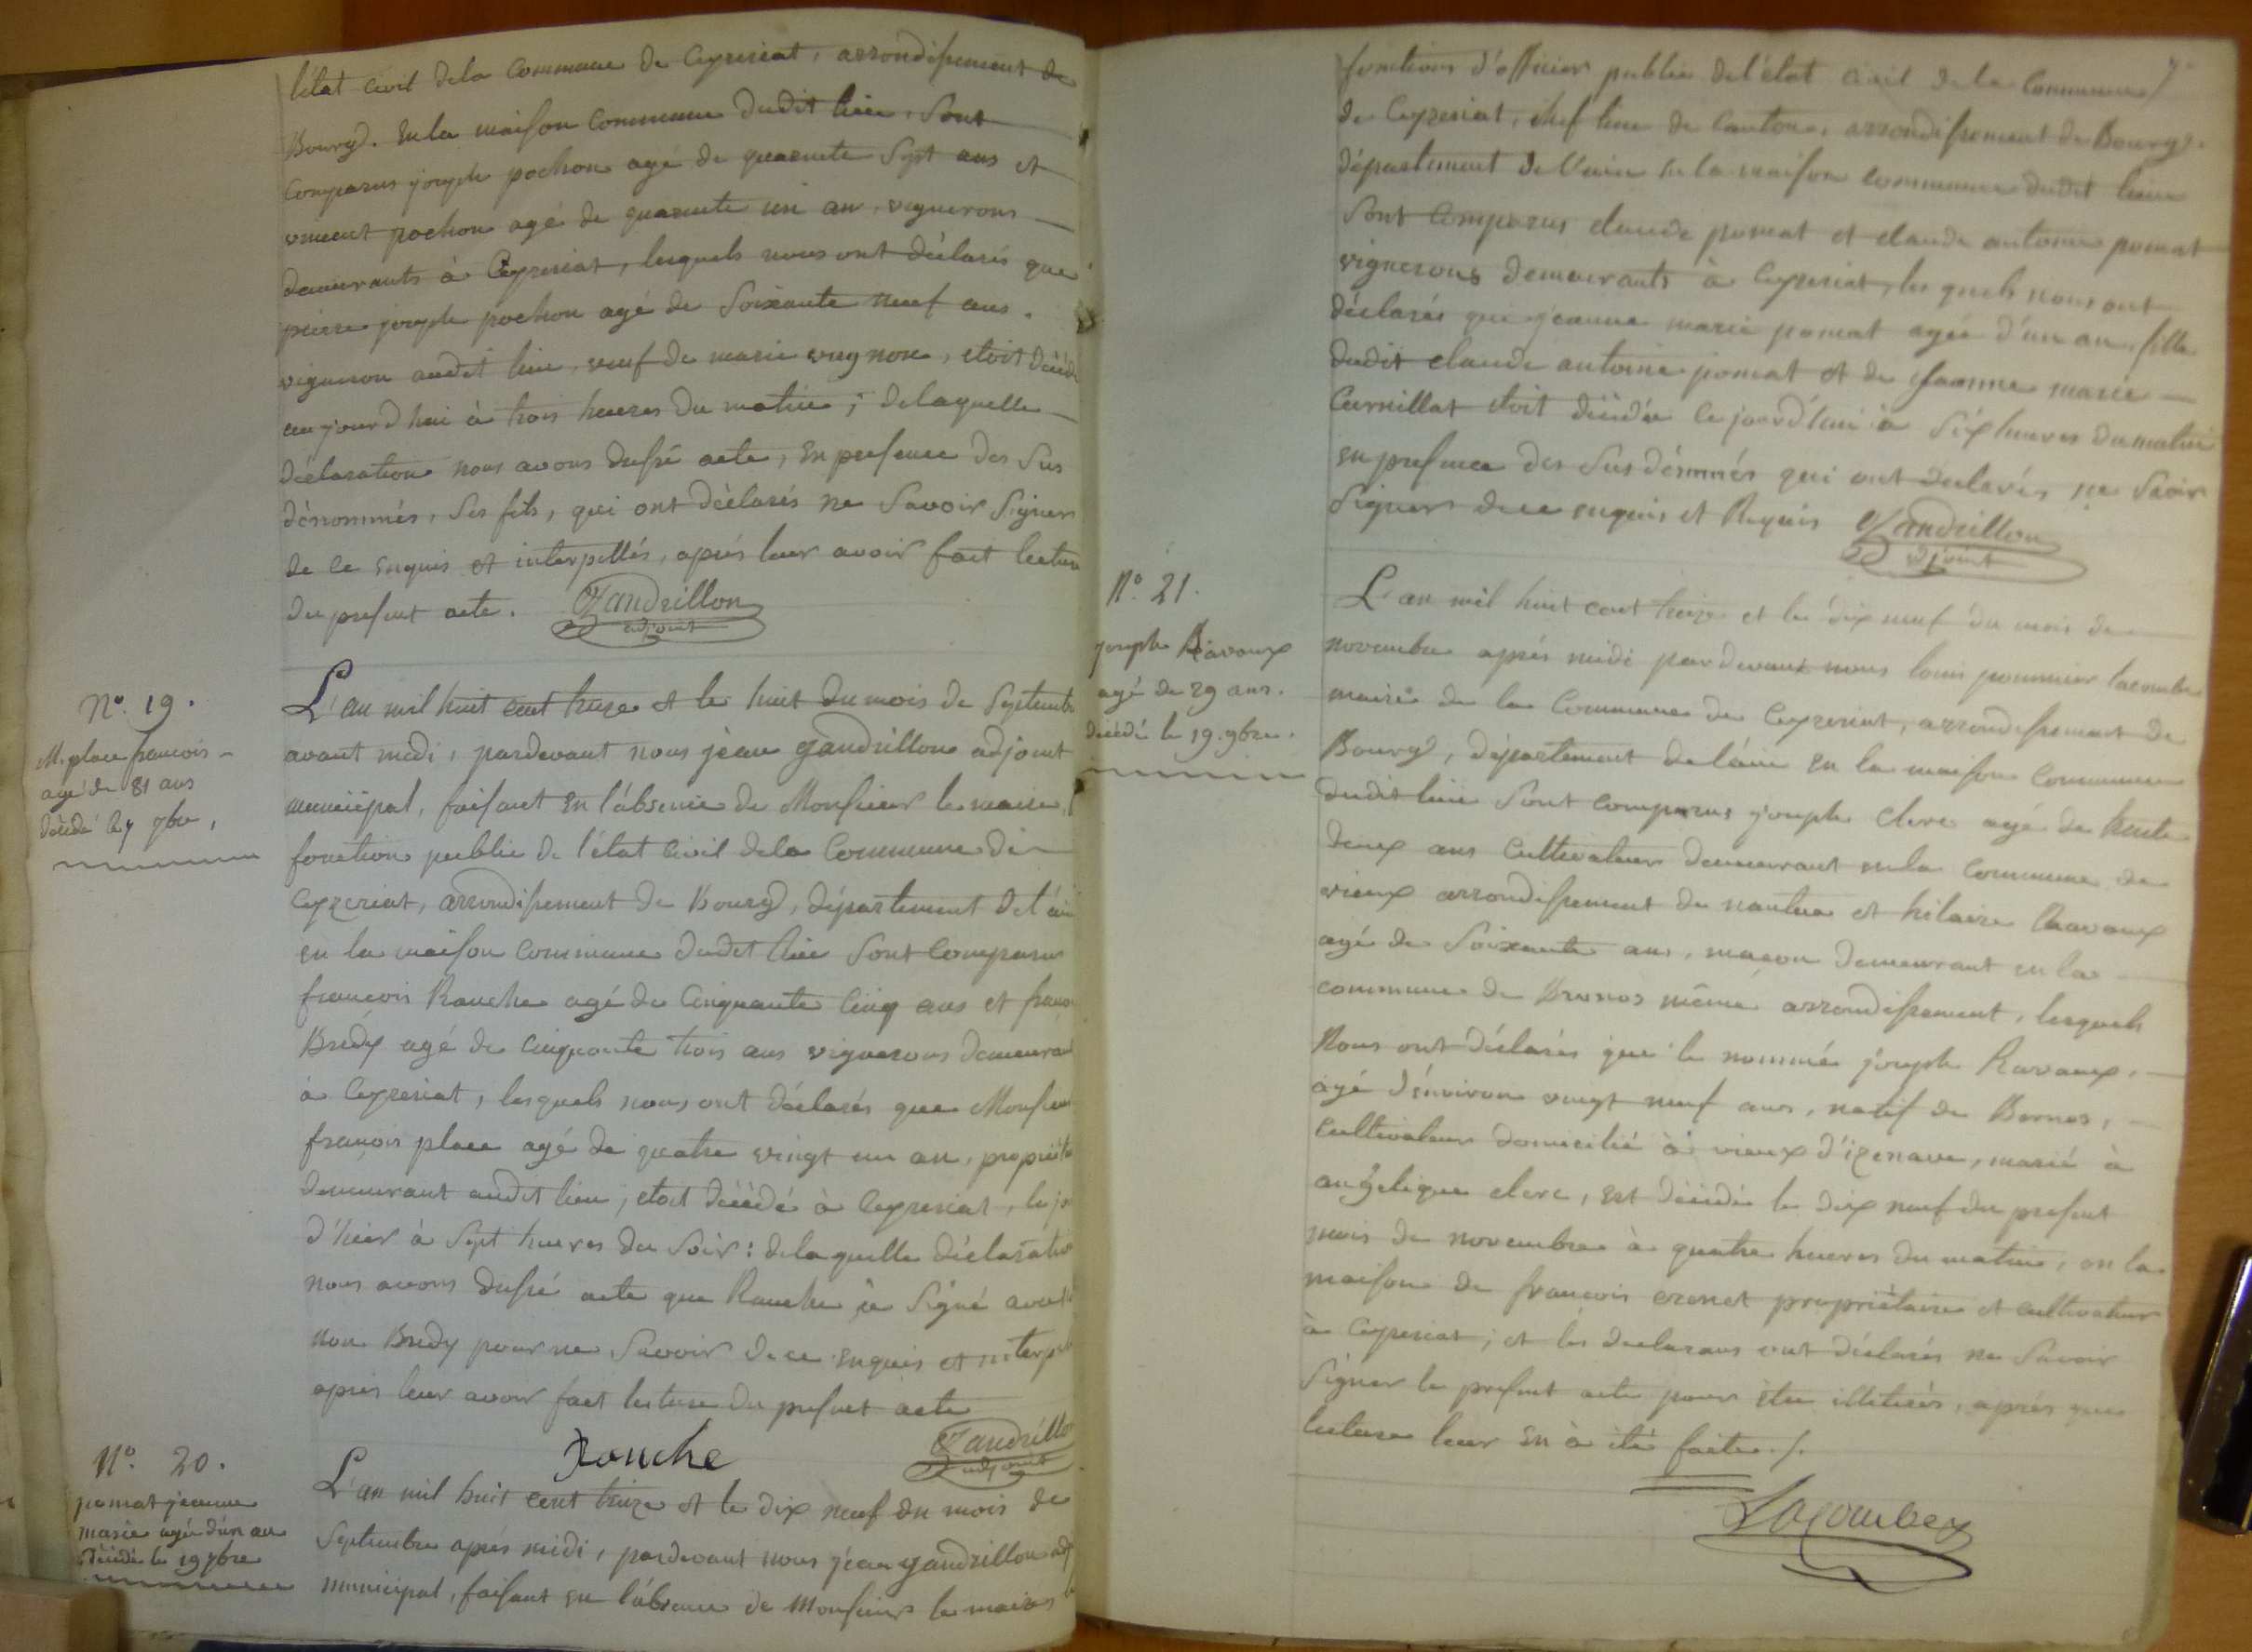 l'état civil dela Commune de Ceyzeriat, arrondissement de
Bourg. en la maison Commune dudit lieu, Sont
Comparus joseph pochon agé de quarante Sept ans et
vincent pochon agé de quarante un an, vignerons
demeurants à Ceyzeriat, lesquels nous ont déclarés que
pierre joseph pochon agé de Soixante neuf ans.
vigneron audit lieu, veuf de marie vugnon, etoit décédé
aujourd'hui à trois heures du matin; delaquelle
déclaration nous avons dressé acte, en presence des Sus
dénommés, Ses fils, qui ont déclarés ne Savoir Signer
de ce enquis et interpellés, aprés leur avoir fait lecture
du present acte. Gandrillon
adjoint
N°. 19.
M. place francois
agé de 81 ans
décédé le 7 7bre,
L'an mil huit cent treize et le huit du mois de Septembre
avant midi, pardevant nous jean gandrillon adjoint
municipal, faisant en l'absence de Monsieur le maire,
fonction public de l'état Civil dela Commune de
Ceyzeriat, arrondissement de Bourg, département del'ain
en la maison Commune dudit lieu Sont Comparus
francois Rouche agé de Cinquante Cinq ans et francois
Bredy agé de Cinquante trois ans vignerons demeurant
à Ceyzeriat, lesquels nous ont déclarés que Monsieur
francois place agé de quatre vingt un an, propriétaire
demeurant audit lieu, etoit décédé à Ceyzeriat, le jour
d'hier à Sept heures du Soir: delaquelle déclaration
nous avons dressé acte que Rouche à Signé avec
non Bredy pour ne Savoir de ce enquis et interpellé
aprés leur avoir fait lecture du present acte
Rouche Gandrillon
adjoint
N°. 20.
pomat jeanne
marie agée d'un an
décédée le 19 7bre
L'an mil huit cent treize et le dix neuf du mois de
Septembre aprés midi, pardevant nous jean gandrillon adj
municipal, faisant en l'absence de Monsieur le maire
fonctions d'officier public del'état Civil de la Commune
de Ceyzeriat, chef lieu de Canton, arrondissement de Bourg.
département de l'ain en la maison commune dudit lieu
Sont Comparus claude pomat et claude antoine pomat
vignerons demeurants à Ceyzeriat, lesquels nous ont
déclarés que jeanne marie pomat agée d'un an, fille
dudit claude antoine pomat et de jeanne marie
Curnillat etoit décédée Ce jourd'hui à Six heures du matin
en presence des Susdénmés qui ont déclarés ne Savoir
Signer de ce enquis et Requis Gandrillon
adjoint
N°. 21.
joseph Ravoux
agé de 29 ans.
décédé le 19. 9bre.
L'an mil huit cent treize et le dix neuf du mois de
novembre aprés midi pardevant nous louis pommier lacombe
maire de la Commune de Ceyzeriat, arrondissement de
Bourg, département del'ain en la maison Commune
dudit lieu Sont Comparus joseph Clerc agé de trente
deux ans Cultivateur demeurant en la Commune de
vieux arrondissement de nantua et hilaire Ravoux
agé de Soixante ans, maçon demeurant en la
commune de même arrondissement, lesquels
Nous ont déclarés que le nommé joseph Ravoux,
agé d'environ vingt neuf ans, natif de
Cultivateur domicilié à vieux d'izenave, marié à
angelique clerc, est décédé le dix neuf du present
mois de novembre à quatre heures du matin, en la
maison de francois propriétaire et cultivateur
à Ceyzeriat; et les declarans ont déclarés ne Savoir
Signer le present acte pour être illitérés, aprés que
lecture leur en à été faite./.
Lacombe